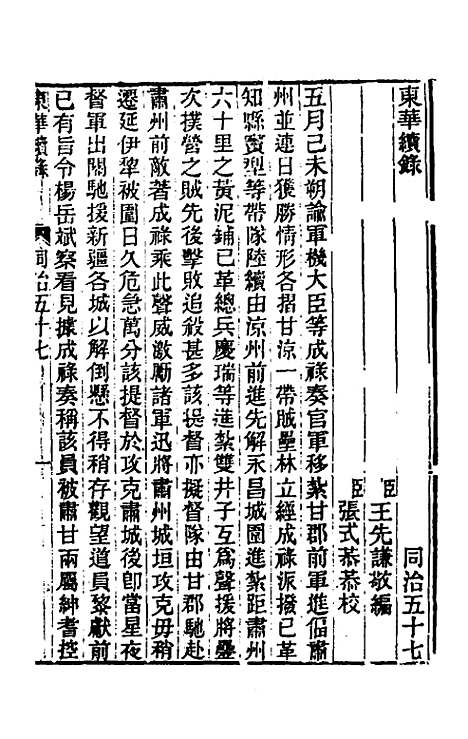 東華續錄 同治五十七
臣王先謙敬編
臣張式恭恭校
五月己未朔諭軍機大臣等成祿奏官軍移紮甘郡前軍進偪肅
州並連日獲勝情形各摺甘涼一帶賊壘林立經成祿派撥已革
知縣賓型等帶隊陸續由涼州前進先解永昌城圍進紮距肅州
六十里之黃泥鋪已革總兵慶瑞等進紮雙井子互爲聲援將壘
次撲營之賊先後擊敗追殺甚多該提督亦擬督隊由甘郡馳赴
肅州前敵著成祿乘此聲威激勵諸軍迅將肅州城垣攻克毋稍
遷延伊犂被圍日久危急萬分該提督於攻克肅城後卽當星夜
督軍出關馳援新疆各城以解倒懸不得稍存觀望道員黎獻前
已有旨令楊岳斌察看見據成祿奏稱該員被肅甘兩屬紳耆控
東華續錄 同治五十七 一